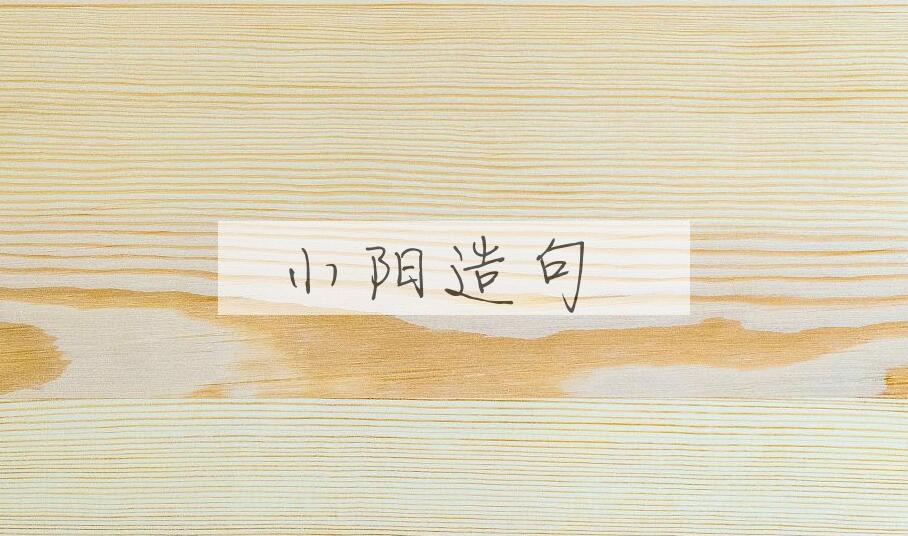 小阳造句